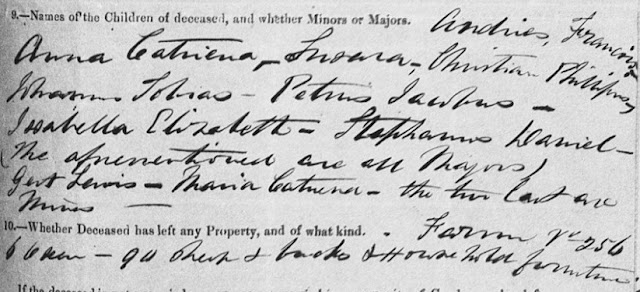 9.—Names of the Children of deceased, and whether Minors or Majors. Andries, Francois,
Anna Catriena — Susara, Christian Phillipus,
Johannes Tobias — Petrus Jacobus —
Issabella Elizabeth — Stephanus Daniel —
(the aforementioned are all Majors)
Gert Lewis — Maria Catriena — the two last are
Minors —
10.—Whether Deceased has left any Property, and of what kind. . Farm No 256
6 Oxen — 90 Sheep & bucks & Household furniture